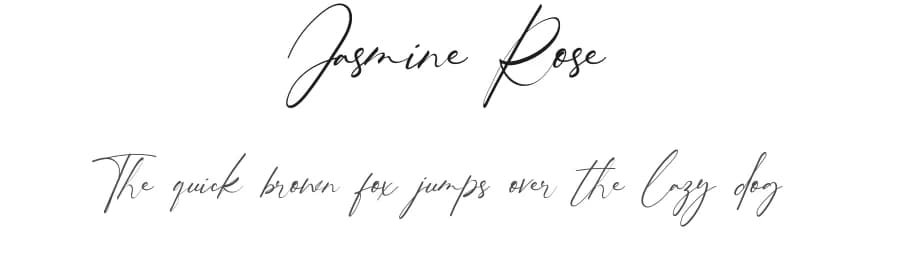 Jasmine Rose
The quick brown fox jumps over the lazy dog